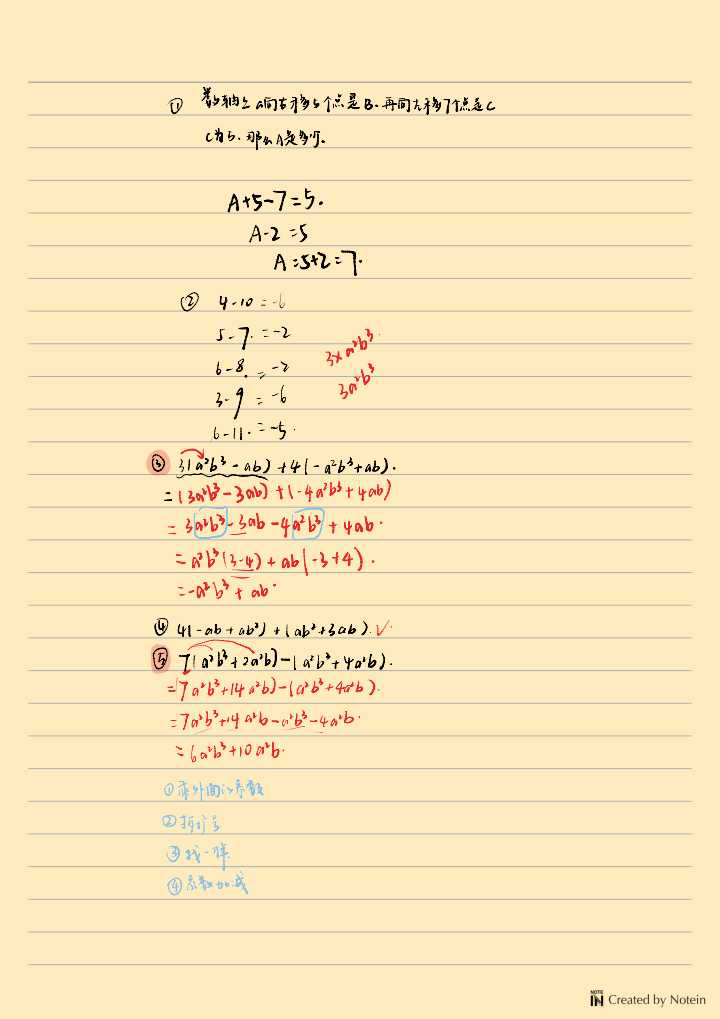 ① 数轴上A向右移5个点是B、再向左移7个点是C
C为5、那么A是多少.
A+5-7=5.
A-2=5
A=5+2=7.
② 4-10=-6
5-7.=-2
6-8.=-2
3×a²b³.
3a²b³
3-9=-6
6-11.=-5.
③ 3(a²b³-ab)+4(-a²b³+ab).
=(3a²b³-3ab)+(-4a²b³+4ab)
=3a²b³-3ab-4a²b³+4ab.
=a²b³(3-4)+ab(-3+4).
=-a²b³+ab.
④ 4(-ab+ab²)+(ab²+3ab).✓
⑤ 7(a²b³+2a²b)-(a²b³+4a²b).
=(7a²b³+14a²b)-(a²b³+4a²b).
=7a²b³+14a²b-a²b³-4a²b.
=6a²b³+10a²b.
①乘外面的系数
②拆括号
③找一样
④系数加减
NOTE IN Created by Notein